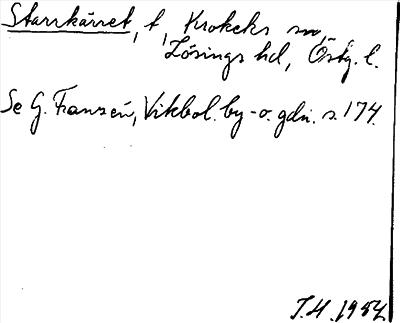 Starrkärret, t, Krokeks sn,
Lösings hd, Östg. l.
Se G. Franzén, Vikbol. by- o. gdn. s. 174.
T.H. 1954